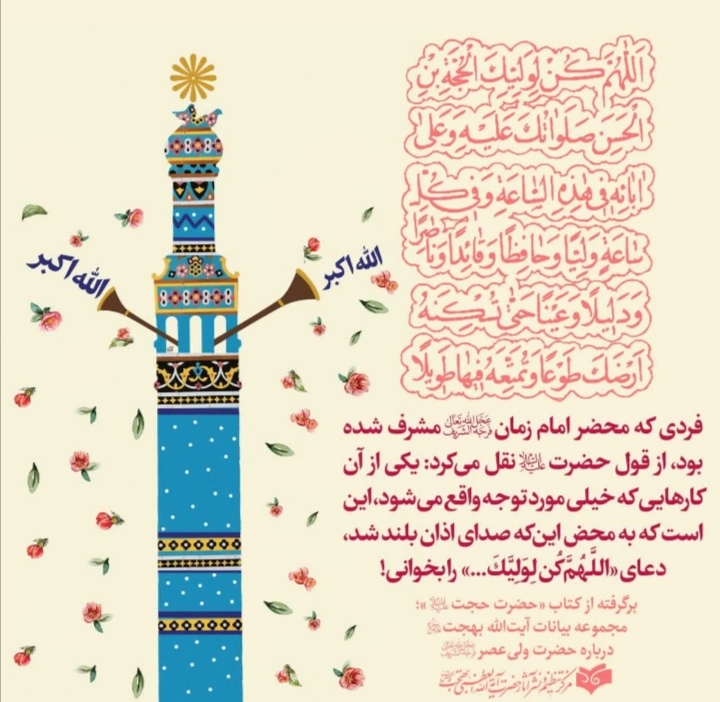 اَللّٰهُمَّ كُنْ لِوَلِيِّكَ الْحُجَّةِ بْنِ
الْحَسَنِ صَلَوَاتُكَ عَلَيْهِ وَعَلىٰ
ابَائِهِ فِي هٰذِهِ السَّاعَةِ وَفِي كُلِّ
سَاعَةٍ وَلِيًّا وَحَافِظًا وَقَائِدًا وَنَاصِرًا
وَدَلِيلًا وَعَيْنًا حَتّٰى تُسْكِنَهُ
اَرْضَكَ طَوْعًا وَتُمَتِّعَهُ فِيهَا طَوِيلًا
الله اکبر
الله اکبر
فردی که محضر امام زمان عجل‌الله‌تعالی‌فرجه‌الشریف مشرف شده
بود، از قول حضرت علیه‌السلام نقل می‌کرد: یکی از آن
کارهایی که خیلی مورد توجه واقع می‌شود، این
است که به محض این‌که صدای اذان بلند شد،
دعای «اللَّهُمَّ کُن لِوَلِیِّکَ...» را بخوانی!
برگرفته از کتاب «حضرت حجت علیه‌السلام»؛
مجموعه بیانات آیت‌الله بهجت
درباره حضرت ولی‌عصر عجل‌الله‌تعالی‌فرجه‌الشریف
مرکز تنظیم و نشر آثار حضرت آیة‌الله العظمی بهجت